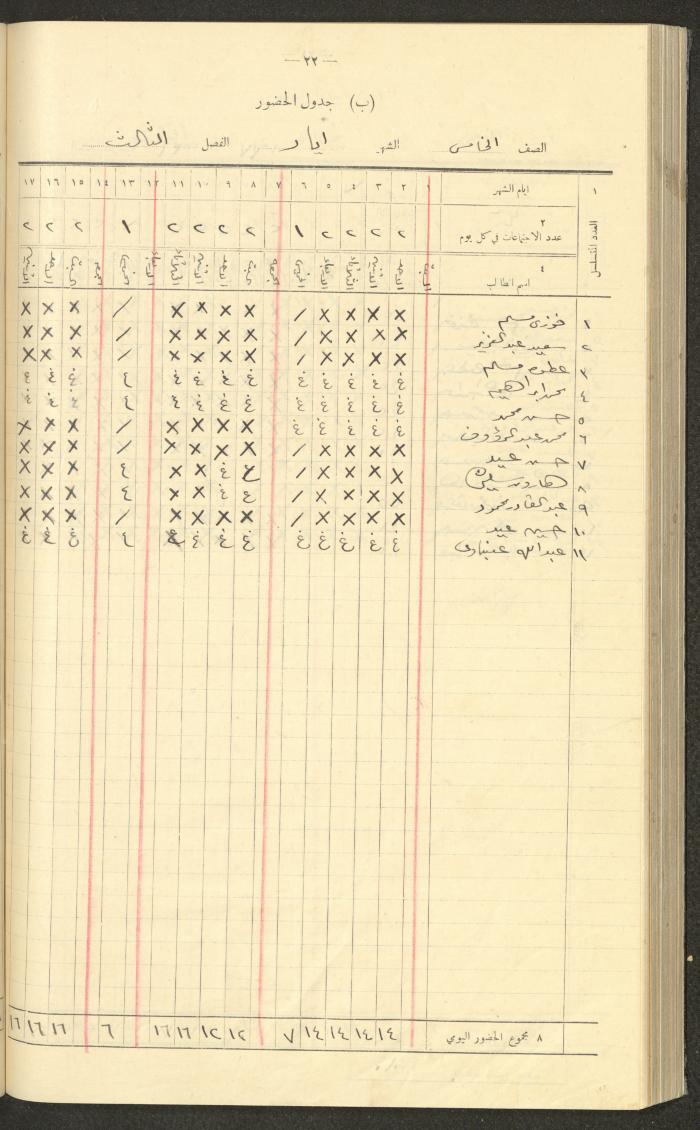 — ٢٢ —
(ب) جدول الحضور
الصف الخامس الشهر ايار الفصل الثالث
١ ايام الشهر ١ ٢ ٣ ٤ ٥ ٦ ٧ ٨ ٩ ١٠ ١١ ١٢ ١٣ ١٤ ١٥ ١٦ ١٧
العدد المتسلسل
٢
عدد الاجتماعات في كل يوم ٢ ٢ ٢ ٢ ١ ٢ ٢ ٢ ٢ ١ ٢ ٢ ٢
٤
اسم الطالب السبت الاحد الاثنين الثلاثاء الاربعاء الخميس الجمعة السبت الاحد الاثنين الثلاثاء الاربعاء الخميس الجمعة السبت الاحد الاثنين
١ فوزي مسلم X X X X / X X X X / X X X
٢ سعيد عبد العزيز X X X X / X X X X / X X X
٣ عطوه مسلم X X X X / X X X X / X X X
٤ محمد ابراهيم غ غ غ غ غ غ غ غ غ غ غ غ غ
٥ حسن محمد غ غ غ غ غ غ غ غ غ غ غ غ غ
٦ محمد عبد الرؤوف غ غ غ غ غ X X X X / X X X
٧ حسن عيد X X X X / X X X X / X X X
٨ هارون X X X X / غ غ X X غ X X X
٩ عبد القادر محمود X X X X / غ غ X X غ X X X
١٠ حسين عيد X X X X / X X X X / X X X
١١ عبد الله غ غ غ غ غ غ غ غ غ غ غ غ غ
٨ مجموع الحضور اليومي ١٤ ١٤ ١٤ ١٤ ٧ ١٢ ١٢ ١٦ ١٦ ٦ ١٦ ١٦ ١٦